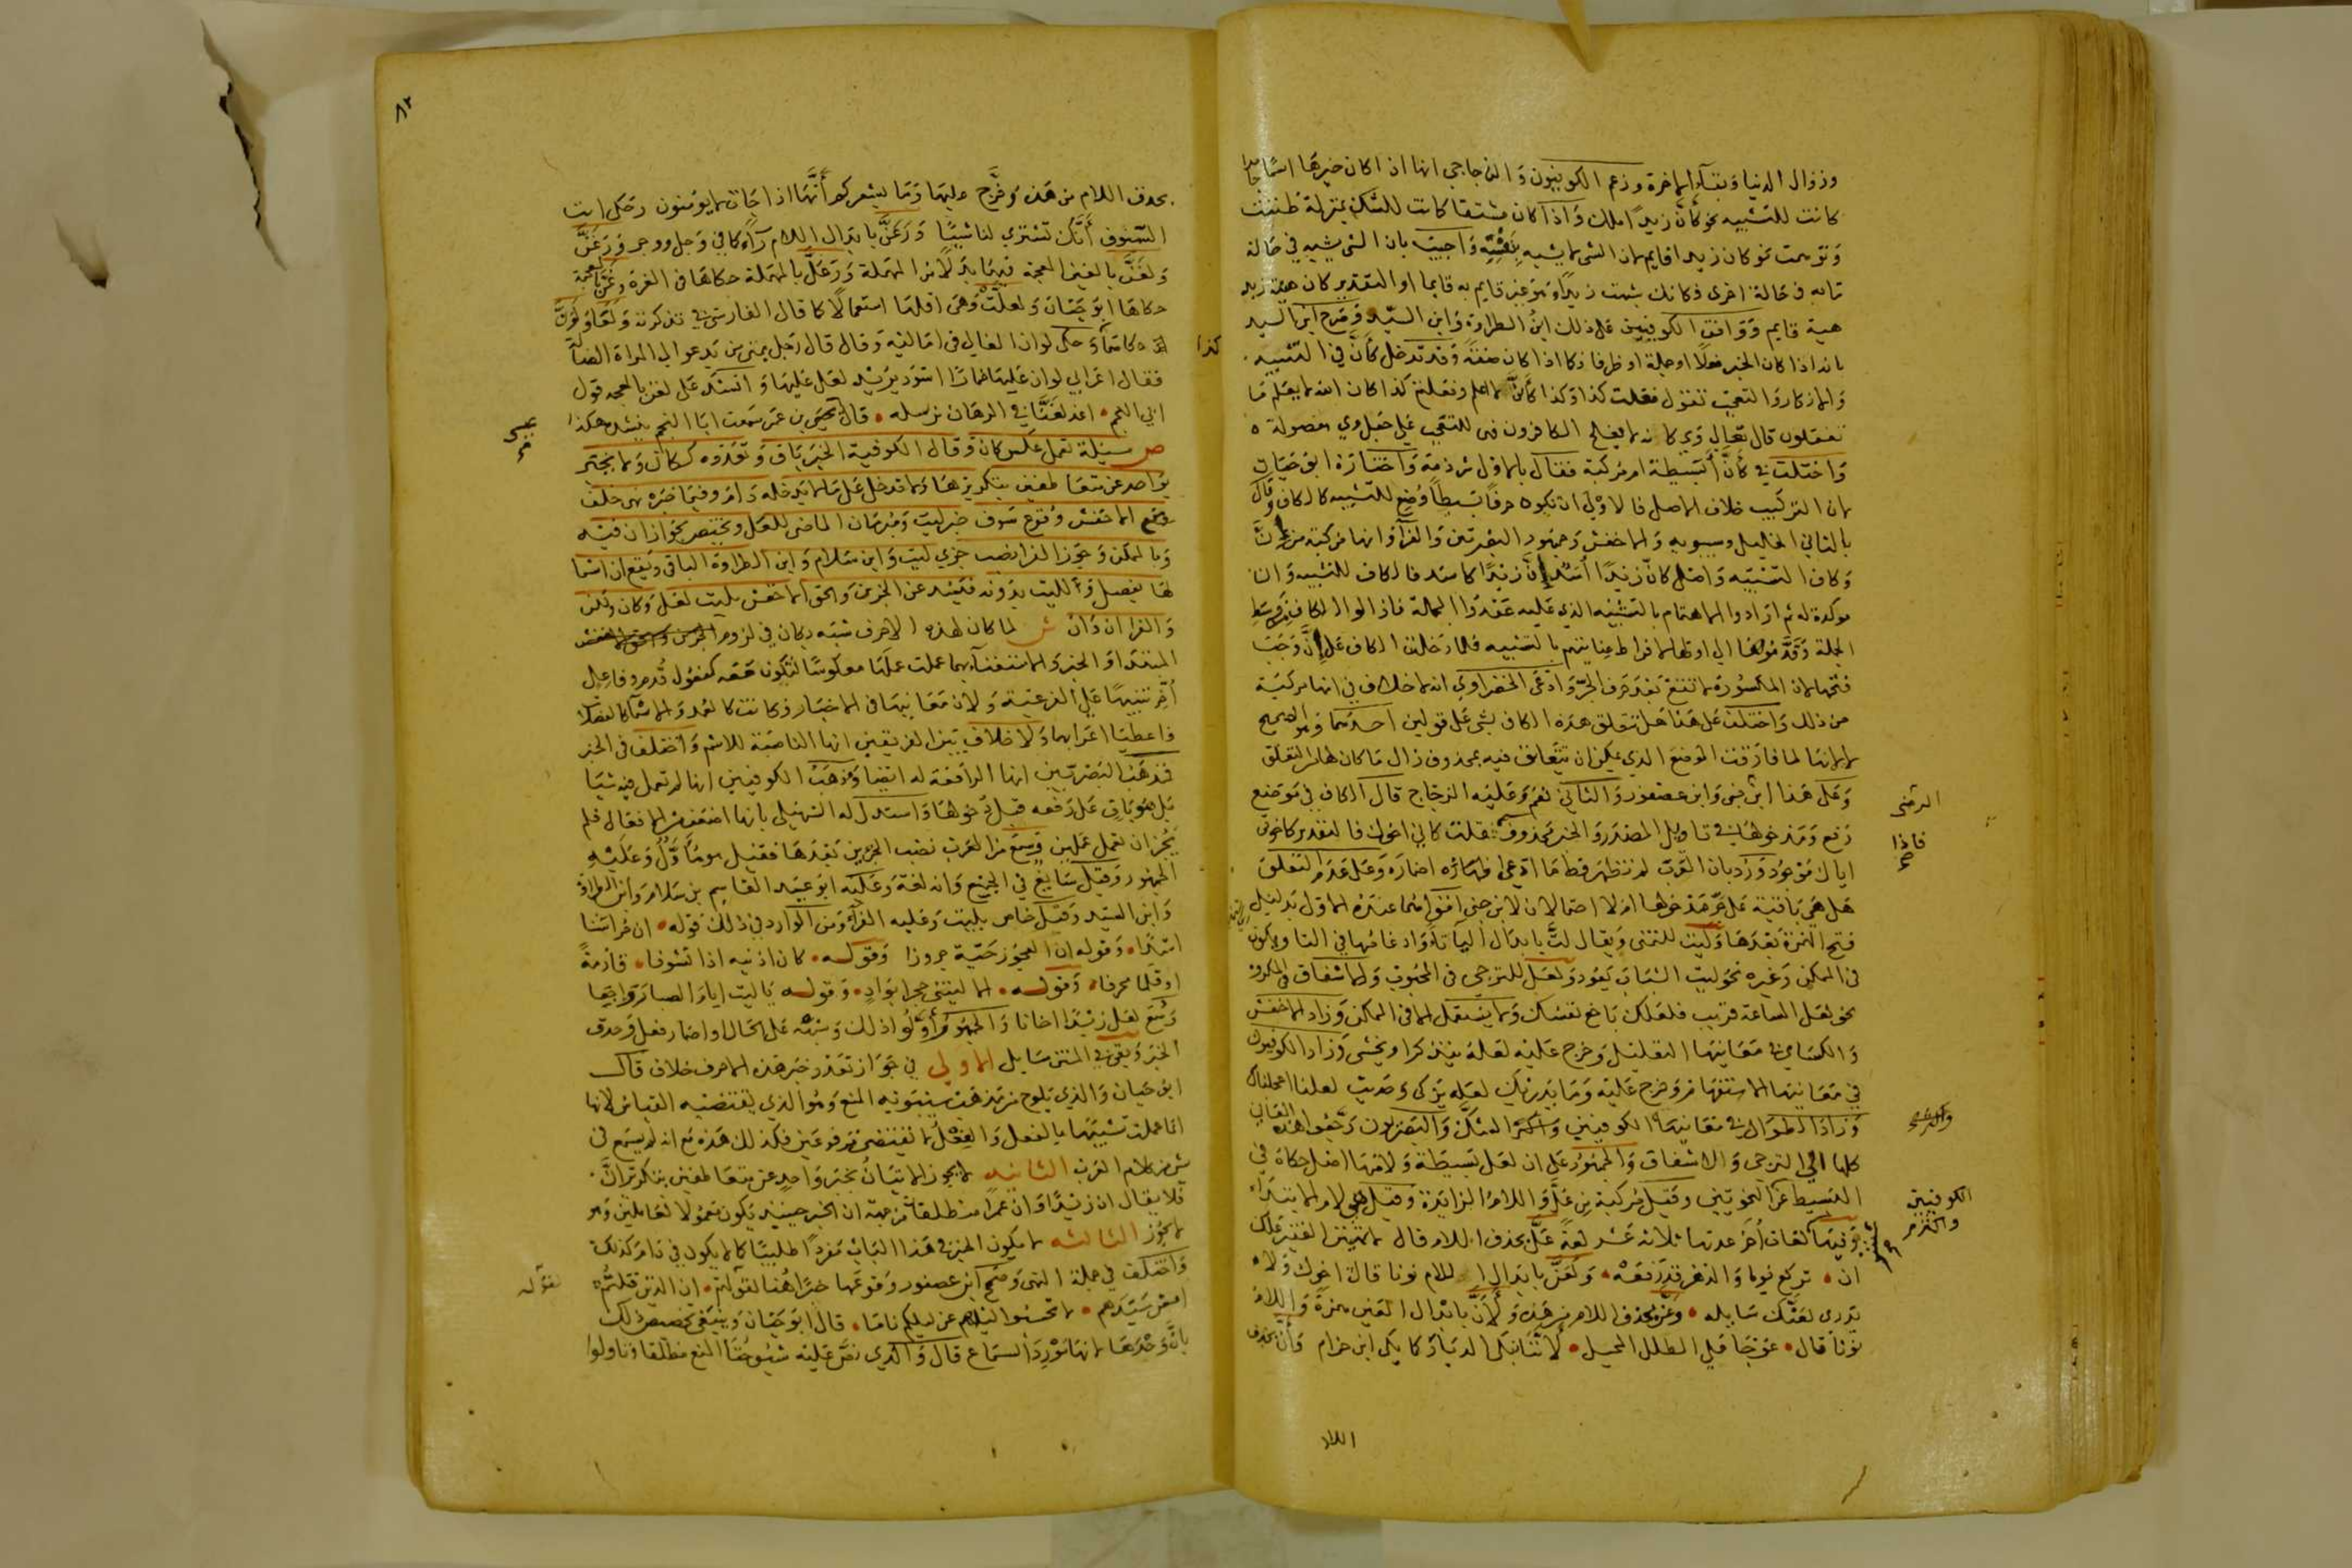 وزوال الدنيا وبقاء الاخرة وزعم الكوفيون والزجاجي انها ان كان خبرها اسما جامدا
كانت للتشبيه نحو كأن زيدا ملك واذا كان مشتقا كانت للشك بمنزلة ظننت
وتوهمت نحو كان زيدا قايم لان الشى لا يشبه بنفسه واجيب بان الشى يشبه في حالة
ما به في حالة اخرى فكانك شبهت زيدا وهو غير قايم به قايما او التقدير كان هيئة زيد
هيئة قايم ووافق الكوفيين على ذلك ابن الطراوة وابن السيد وصرح ابن السيد
بانه اذا كان الخبر فعلا او جملة او ظرفا وكذا اذا كان صفة وقد تدخل كأن في التنبيه
والانكار والتعجب تقول فعلت كذا وكذا كأنى لا اعلم وفعلتم كذا كان الله لا يعلم ما
تفعلون قال تعالى ويكانه لا يفلح الكافرون فهى للتعجب على جعل وي مفصولة ه
واختلف في كأن أبسيطة ام مركبة فقال بالاول شرذمة واختاره ابو حيان
لان التركيب خلاف الاصل فالاولى ان تكون حرفا بسيطا وضع للتشبيه كالكاف وقال
بالثاني الخليل وسيبويه والاخفش وجمهور البصرين والفراء وانها مركبة من أنَّ
وكاف التشبيه واصل كان زيدا أسد إن زيدا كاسد فالكاف للتشبيه وان
موكدة له ثم ارادوا الاهتمام بالتشبيه الذي عليه عقدوا الجملة فازالوا الكاف من وسط
الجملة وقدموها الى اولها لافراط عنايتهم بالتشبيه فلما دخلت الكاف على إن وجب
فتحها لان المكسورة لا تقع بعد حرف الجر وادعى الخضراوي انه لا خلاف في انها مركبة
من ذلك واختلف على هذا هل تتعلق هذه الكاف بشى على قولين احدهما وهو الصحيح
لا لانها لما فارقت الموضع الذي يمكن ان تتعلق فيه بمحذوف زال ما كان لها من التعلق
وعلى هذا ابن جنى وابن عصفور والثاني نعم وعليه الزجاج قال الكاف في موضع
رفع ومدخولها في تاويل المصدر والخبر محذوف فقلت كاني اخوك فالتقدير كاخوتى
اياك موجود ورد بان العرب لم تظهر قط ما ادعى اضماره وعلى عدم التعلق
هل هي باقية على جر مدخولها ام لا احتمالان لابن جنى اقواهما عنده الاول بدليل
فتح الهمزة بعدها وليت للتمنى ويقال لتَّ بابدال اليا تاء وادغامها في التا ويكون
في الممكن وغيره نحو ليت الشباب يعود ولعل للترجى فى المحبوب والاشفاق في المكروه
نحو لعل الساعة قريب فلعلك باخع نفسك ولا يستعمل الا في الممكن وزاد الاخفش
والكساي في معانيها التعليل وخرج عليه لعله يتذكر او يخشى وزاد الكوفيون
في معانيها الاستفهام وخرج عليه وما يدريك لعله يزكى وحديث لعلنا اعجلناك
وزاد الطوال في معانيها الكوفيين الشك والبصريون رجعوا هذه المعاني
كلها الى الترجى والاشفاق والجمهور على ان لعل بسيطة ولامها اصل حكاه في
البسيط عن النحويين وقيل مركبة من عل واللام الزايدة وقيل هي لام الابتداء
وفيها لغات أخر عدتها ثلاثة عشر لغة علَّ بحذف اللام قال لا تهين الفقير علك
ان • تركع يوما والدهر قد رفعه • ولعنَّ بابدال اللام نونا قال اخوك ولا
تدرى لعنَّك سايله • وعنَّ بحذف اللام من هذه ولأنَّ بابدال العين همزة واللام
نونا قال • عوجا على الطلل المحيل • لأننا نبكى الديار كما بكى ابن حزام وأن بحذف
الرضى
فاذا
صح
الكوفيين
اللا
٨٢
بحذف اللام من هذه وخرج عليها وما يشعركم أنها اذا جاءت لا يؤمنون وحكى ايت
السوق أنَّك تشترى لنا شيئا ورعنَّ بابدال اللام راء كما في وجل ووجر ورغنَّ
ولغنَّ بالغين المعجمة فيهما بدلا من المهملة ورعلَّ بالمهملة حكاها في الغرة وغنَّ بالمعجمة
حكاها ابو حيان ولعلَّت وهى اقلها استعمالا كما قال الفارسى في تذكرته
كما وحكى لوان القالي فى اماليه وقال قال رجل بمنى من يدعو الى المراة الضالة
فقال اعرابي لوان عليها خمارا اسود يريد لعل عليها وانشد على لغن بالمعجمة قول
ابي النجم • اغد لغنَّا في الرهان نرسله • قال عيسى بن عمر سمعت ابا النجم ينشد هكذا
ص مسئلة تعمل عكس كان وقال الكوفية الخبر باق وتعدده ككان ولا يجتمر
بواحد عن متعاطفين بتكريرها ولا تدخل على ما لا تدخله دام وفيما خبره نهى خلف
ومنع الاخفش وقوع سوف خبر ليت ومبرمان الماضى للعل ويختص بجواز ان فيه
وبالممكن وجوز الفرا نصب جزى ليت وابن سلام وابن الطراوة الباقى وتقع ان اسما
لها بفصل ولليت بدونه فتسد عن الجزءين والحق الاخفش بليت لعل وكان ولكن
والفرا ان وان ش لما كان لهذه الاحرف شبه بكان في لزوم
المبتدا والخبر والاستغناء بهما عملت عملها معكوسا لتكون معه كمفعول قدم وفاعل
أخر تنبيها على الفرعية ولان معانيها فى الاخبار فكانت كالعمد والاسما كالفضلا
فاعطيا اعرابهما ولا خلاف بين الفريقين انها الناصبة للاسم واختلف فى الخبر
فمذهب البصريين انها الرافعة له ايضا ومذهب الكوفيين انها لم تعمل فيه شيا
بل هو باق على رفعه قبل دخولها واستدل له السهيلى بانها اضعف من الافعال فلم
يجز ان تعمل عملين وسمع من العرب نصب الجزين بعدها فقيل مؤول وعليه
الجمهور وقيل سايغ في الجميع وانه لغة وعليه ابو عبيد القاسم بن سلام وابن الطراوة
وابن السيد وقيل خاص بليت وعليه الفراء ومن الوارد في ذلك قوله • ان حراسنا
اسدا • وقوله ان العجوز خبة جروزا وقوله • كان اذنيه اذا تشوفا • قادمة
او قلما محرفا • وقوله • الا ليتنى حجرا بواد • وقوله يا ليت ايام الصبا رواجعا
وسمع لعل زيدا اخانا والجمهور أولوا ذلك وشبهه على الحال او اضمار فعل وحذف
الخبر وبقى في المتن مسايل الاولى في جواز تعدد خبر هذه الاحرف خلاف قال
ابو حيان والذي يلوح من مذهب سيبويه المنع وهو الذي يقتضيه القياس لانها
انما عملت تشبيها بالفعل والفعل لا يقتضى مرفوعين فكذلك هذه مع انه لم يسمع فى
شى من كلام العرب الثانية لا يجوز الاتيان بخبر واحد عن متعاطفين بتكرير انَّ
فلا يقال ان زيدا وان عمرا منطلقان من جهة ان الخبر حينيذ يكون معمولا لعاملين وهو
لا يجوز الثالثه لا يكون الخبر فى هذا الباب مفردا طلبيا كما لا يكون في دام كذلك
واختلف في جملة النهى وصحح ابن عصفور وقوعها خبرا هنا لقولهم • ان الذين قتلتم
امس سيدهم • لا تحسبوا ليلهم عن ليلكم ناما • قال ابو حيان وينبغى تخصيص ذلك
بانَّ وحدها لانها مورد السماع قال والذي نص عليه شيوخنا المنع مطلقا وتاولوا